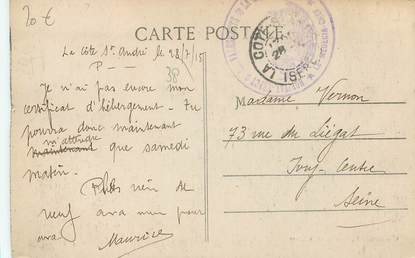 20 €
CARTE POSTALE
La Côte St André le 28/7/15
P—
38
Je n'ai pas encore mon
certificat d'hébergement. Tu
pourra donc maintenant
m'attendre
maintenant que samedi
matin.
Plus rien de
neuf
Maurice
LA COTE ST
ISERE
Madame Vernon
73 rue du Liégat
Ivry-Centre
Seine